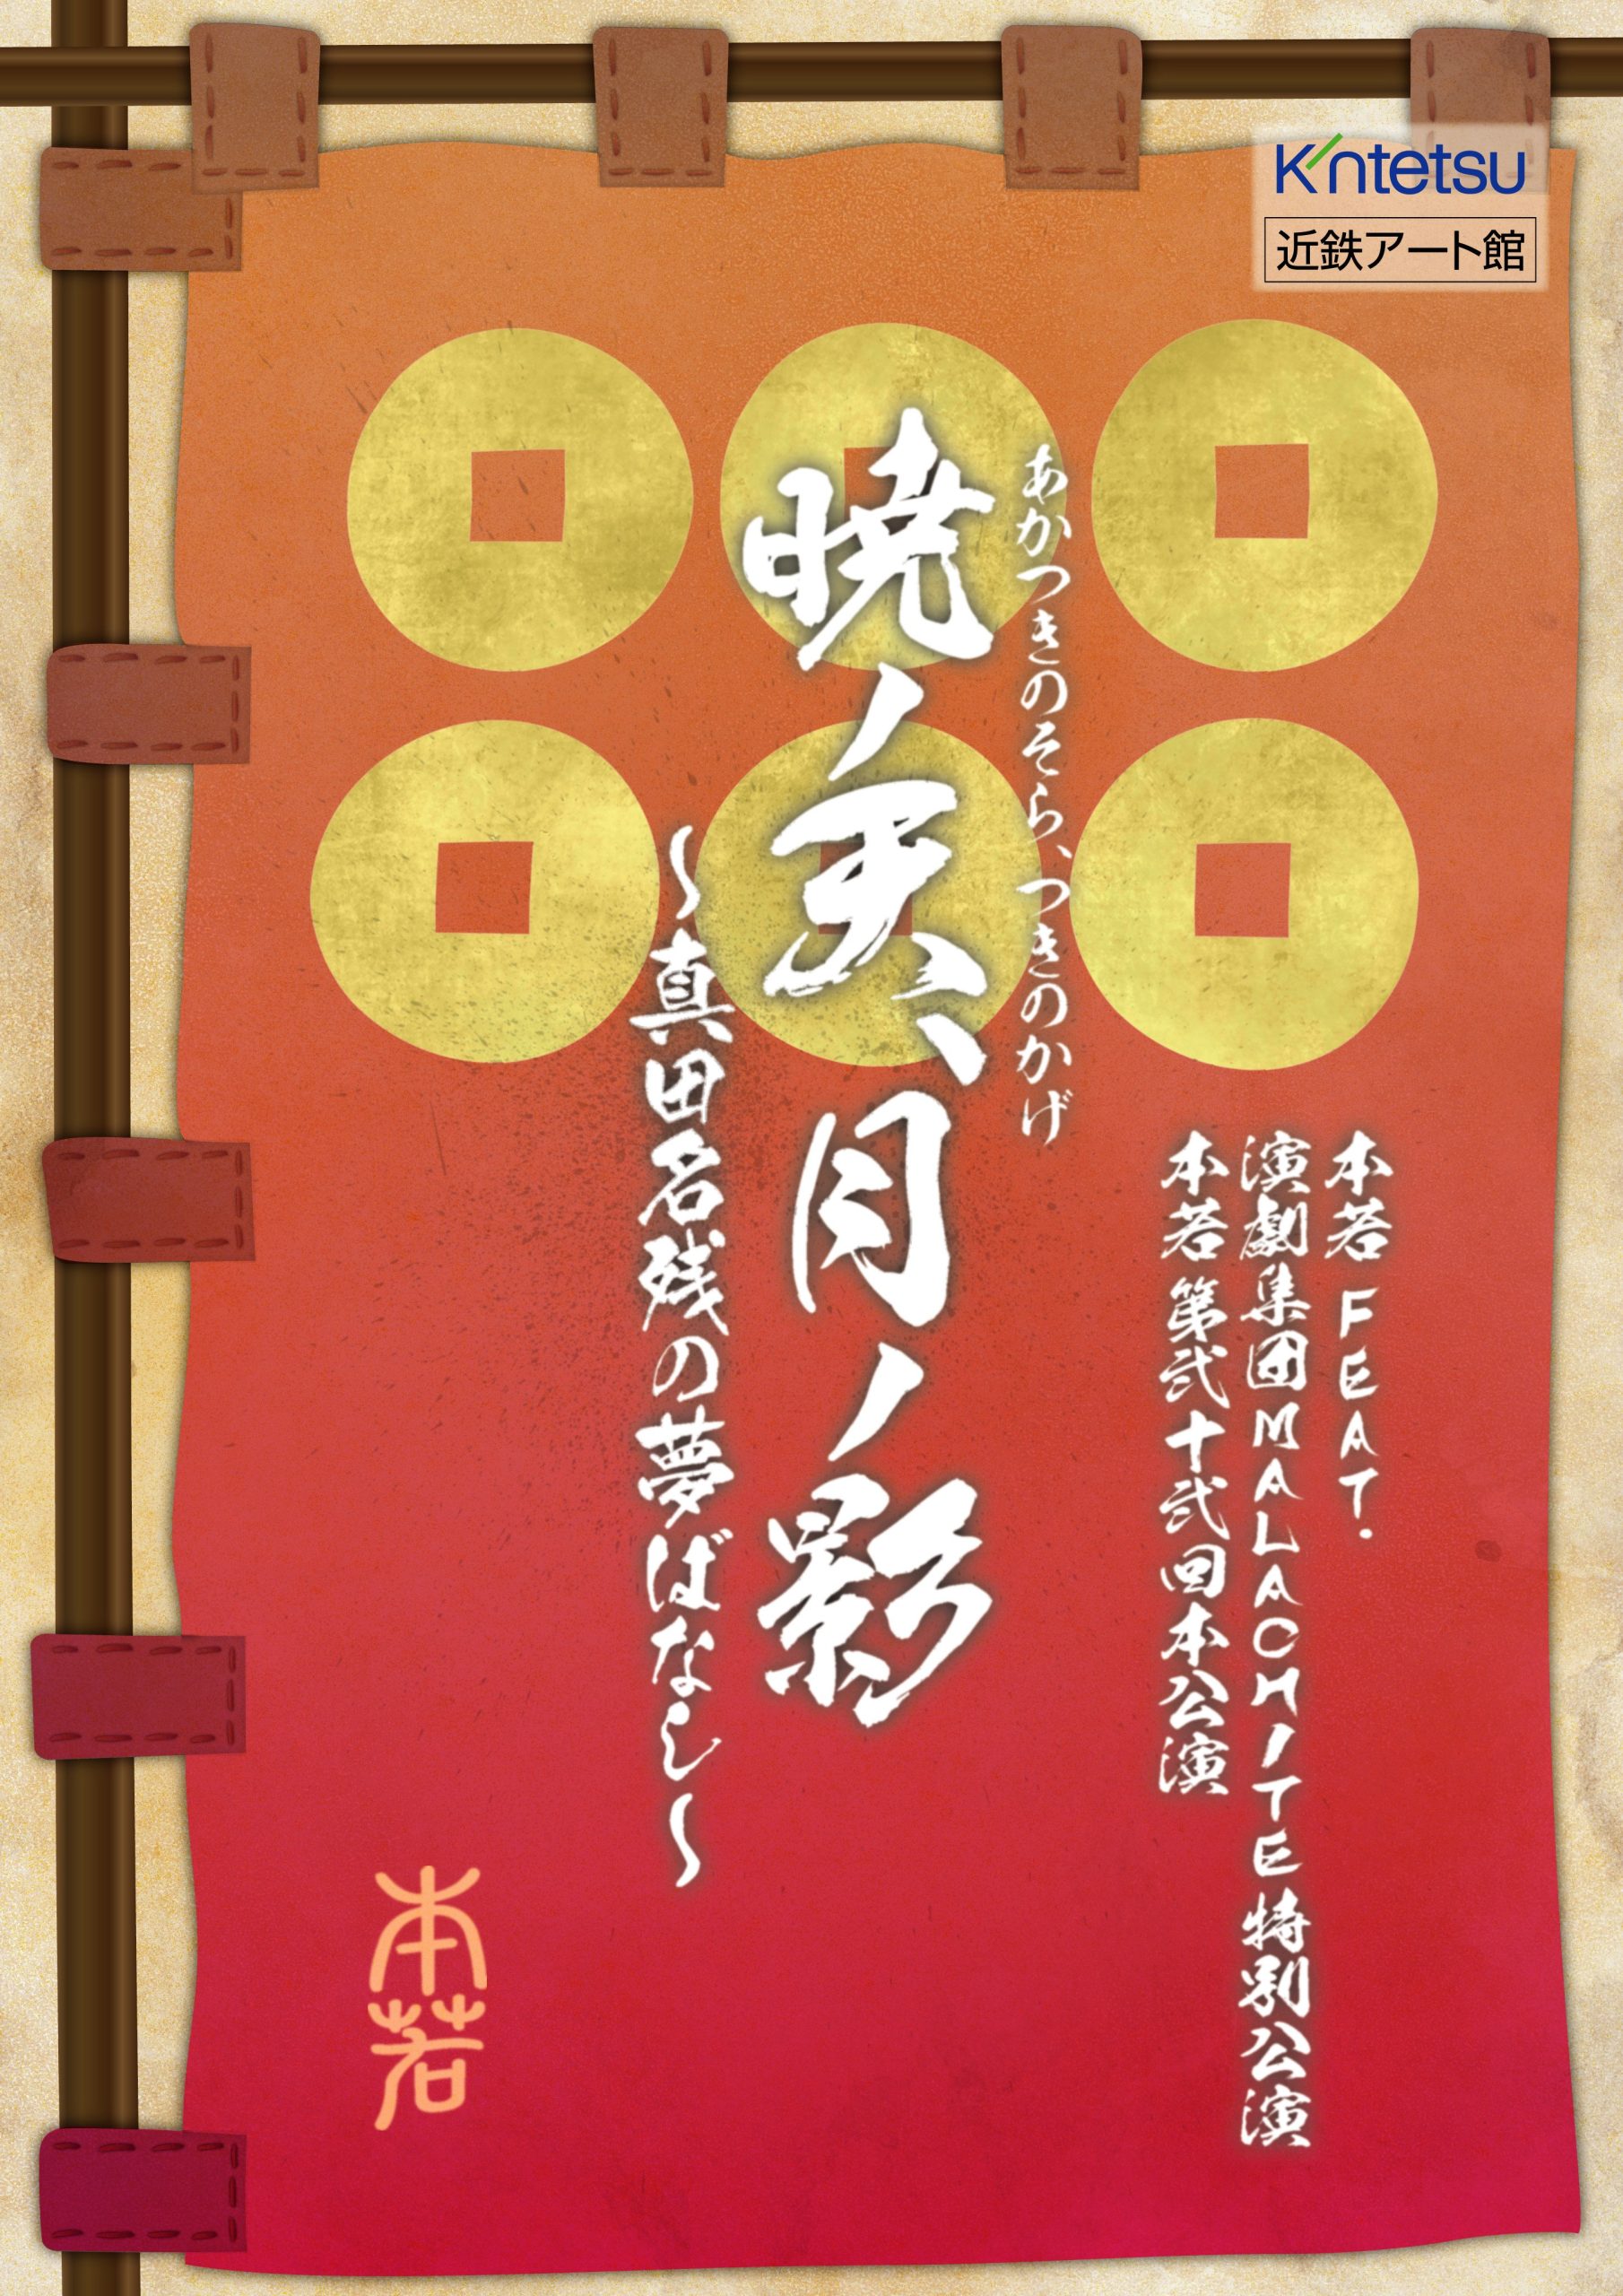 Kintetsu
近鉄アート館
本若 FEAT.
演劇集団MALACHITE特別公演
本若 第弐十弐回本公演
あかつきのそら、つきのかげ
暁ノ天、月ノ影
〜真田名残の夢ばなし〜
本若